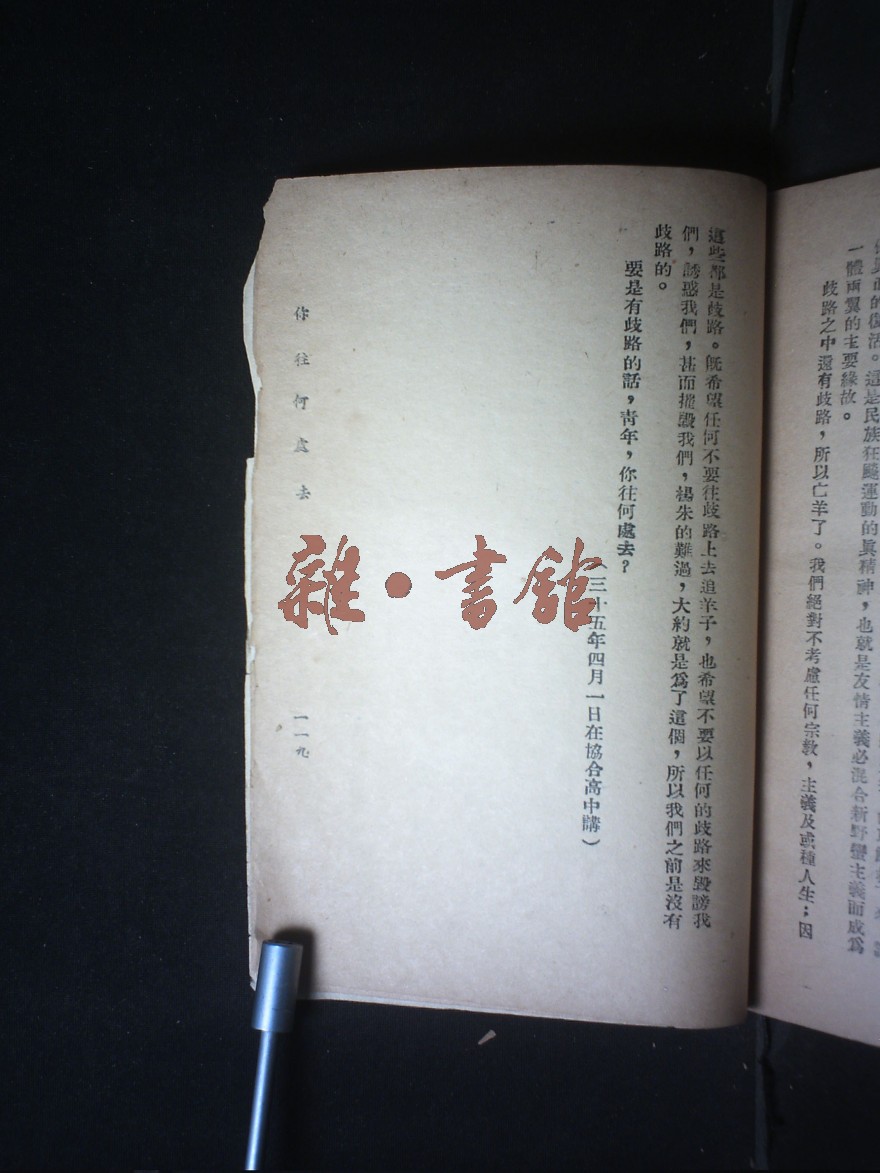 的復活。這是民族狂飈運動的眞精神，也就是友情主義必混合新野蠻主義而成爲
一體兩翼的主要緣故。
歧路之中還有歧路，所以亡羊了。我們絕對不考慮任何宗教，主義及或種人生；因
這些都是歧路。旣希望任何不要往歧路上去追羊子，也希望不要以任何的歧路來毀謗我
們，誘惑我們，甚而摧毀我們，楊朱的難過，大約就是爲了這個，所以我們之前是沒有
歧路的。
要是有歧路的話，靑年，你往何處去？
（三十五年四月一日在協合高中講）
你往何處去
一一九
雜·書館